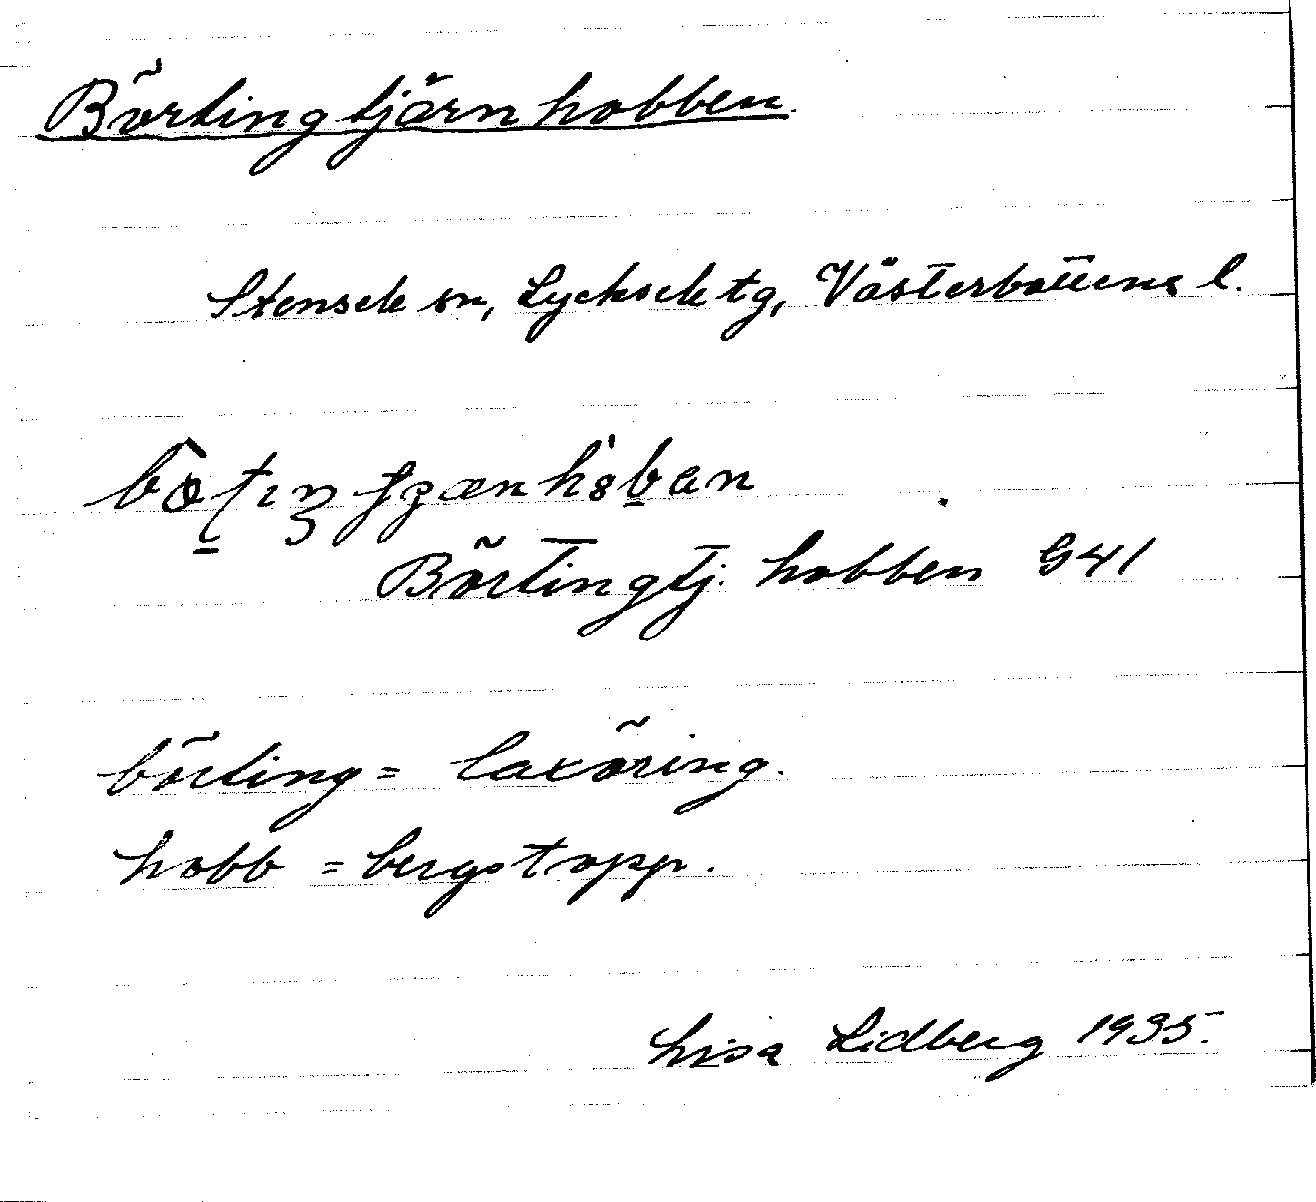 Börtingtjärnhobben.
Stensele sn, Lycksele tg, Västerbottens l.
Börtingtj. hobben G41
börting = laxöring.
hobb = bergstopp.
Lisa Lidberg 1935.